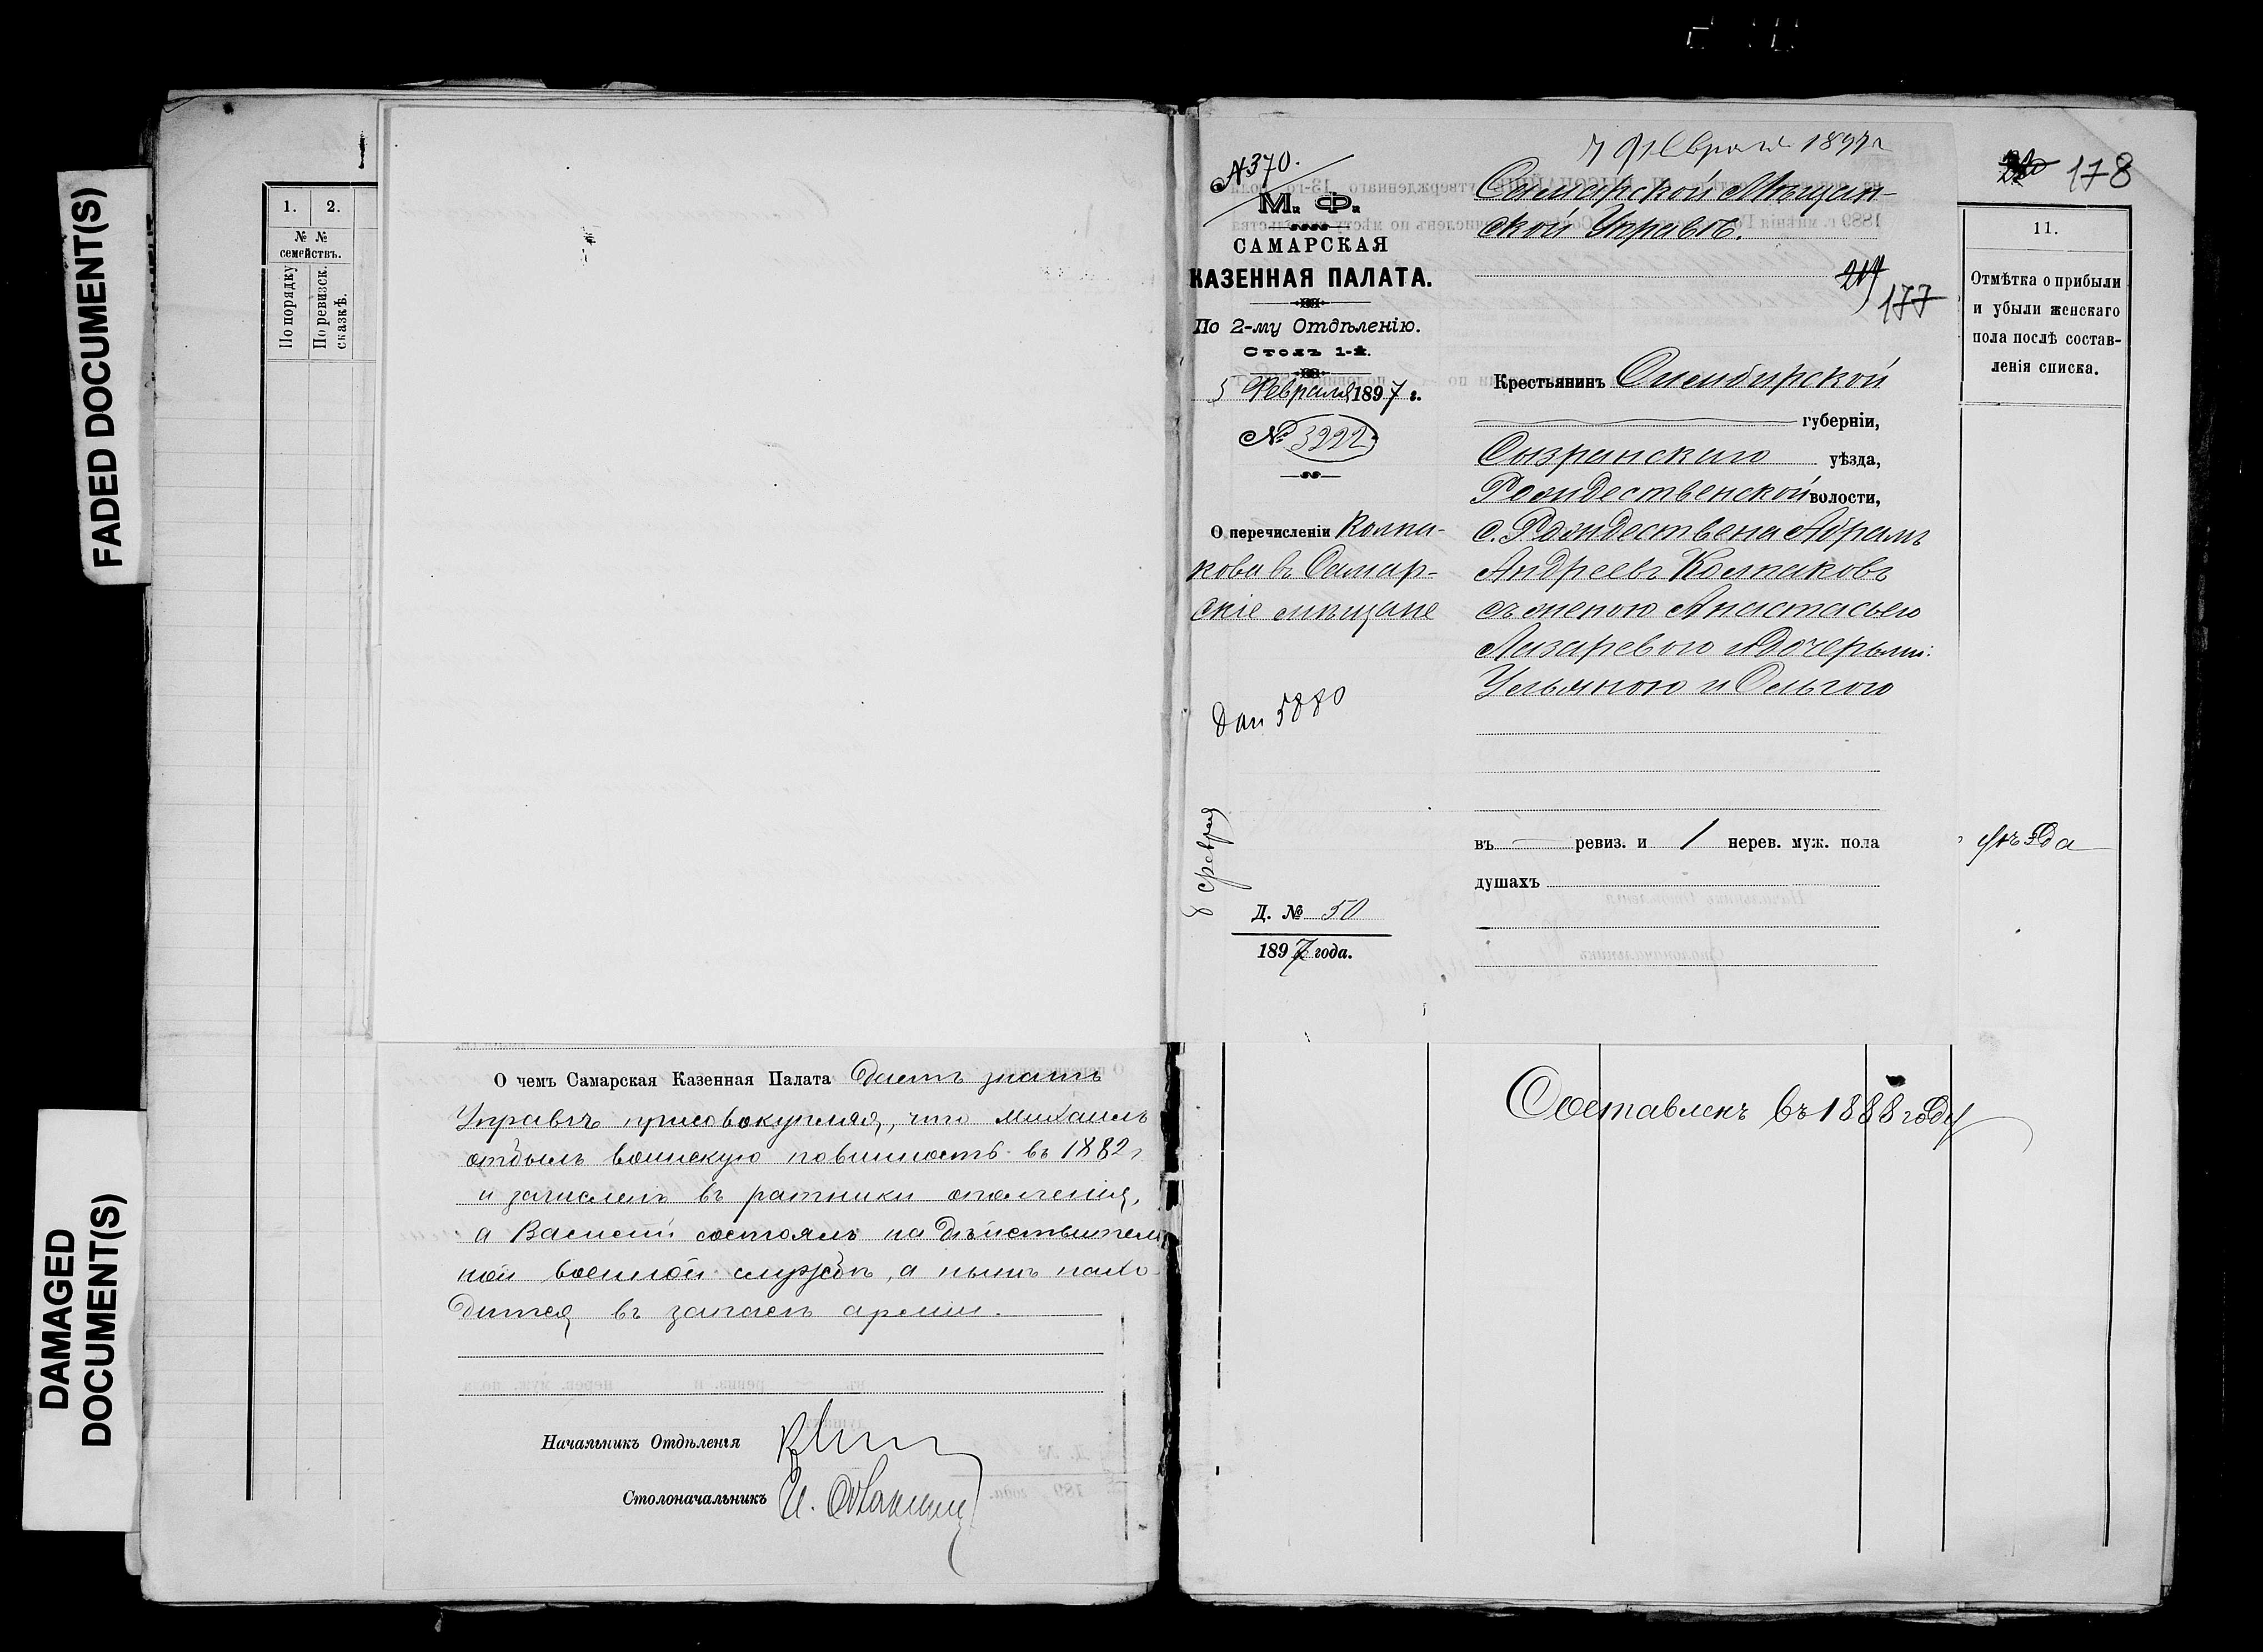 FADED DOCUMENT(S)
DAMAGED
DOCUMENT(S)
1. 2.
№ №
семействъ.
По порядку
По ревизск.
сказкѣ.
О чемъ Самарская Казенная Палата даетъ знать
Управѣ присовокупляя, что Михаилъ
отбылъ воинскую повинность въ 1882 г
и зачисленъ въ ратники ополченія,
а Василій состоялъ на дѣйствитель
ной военной службѣ, а нынѣ нахо
дится въ запасѣ арміи.
Начальникъ Отдѣленія
Столоначальникъ
№ 370.
М. Ф.
САМАРСКАЯ
КАЗЕННАЯ ПАЛАТА.
По 2-му Отдѣленію.
Столъ 1-й.
5 Февраля 1897 г.
№ 3222
О перечисленіи Колпа-
кова въ Самар-
скіе мѣщане
5880
8 февраля
Д. № 50
1897 года.
7 февраля 1897 г
Самарской Мѣщан-
ской Управѣ.
177
Крестьянинъ Симбирской
губерніи,
Сызранскаго уѣзда,
Рождественской волости,
с. Рождествена Абрамъ
Андреевъ Колпаковъ
съ женою Анастасьею
Лазаревою и дочерьми:
Ульяною и Ольгою
въ — ревиз. и 1 нерев. муж. пола
душахъ
178
11.
Отмѣтка о прибыли
и убыли женскаго
пола послѣ состав-
ленія списка.
уѣзда
Составленъ въ 1888 году